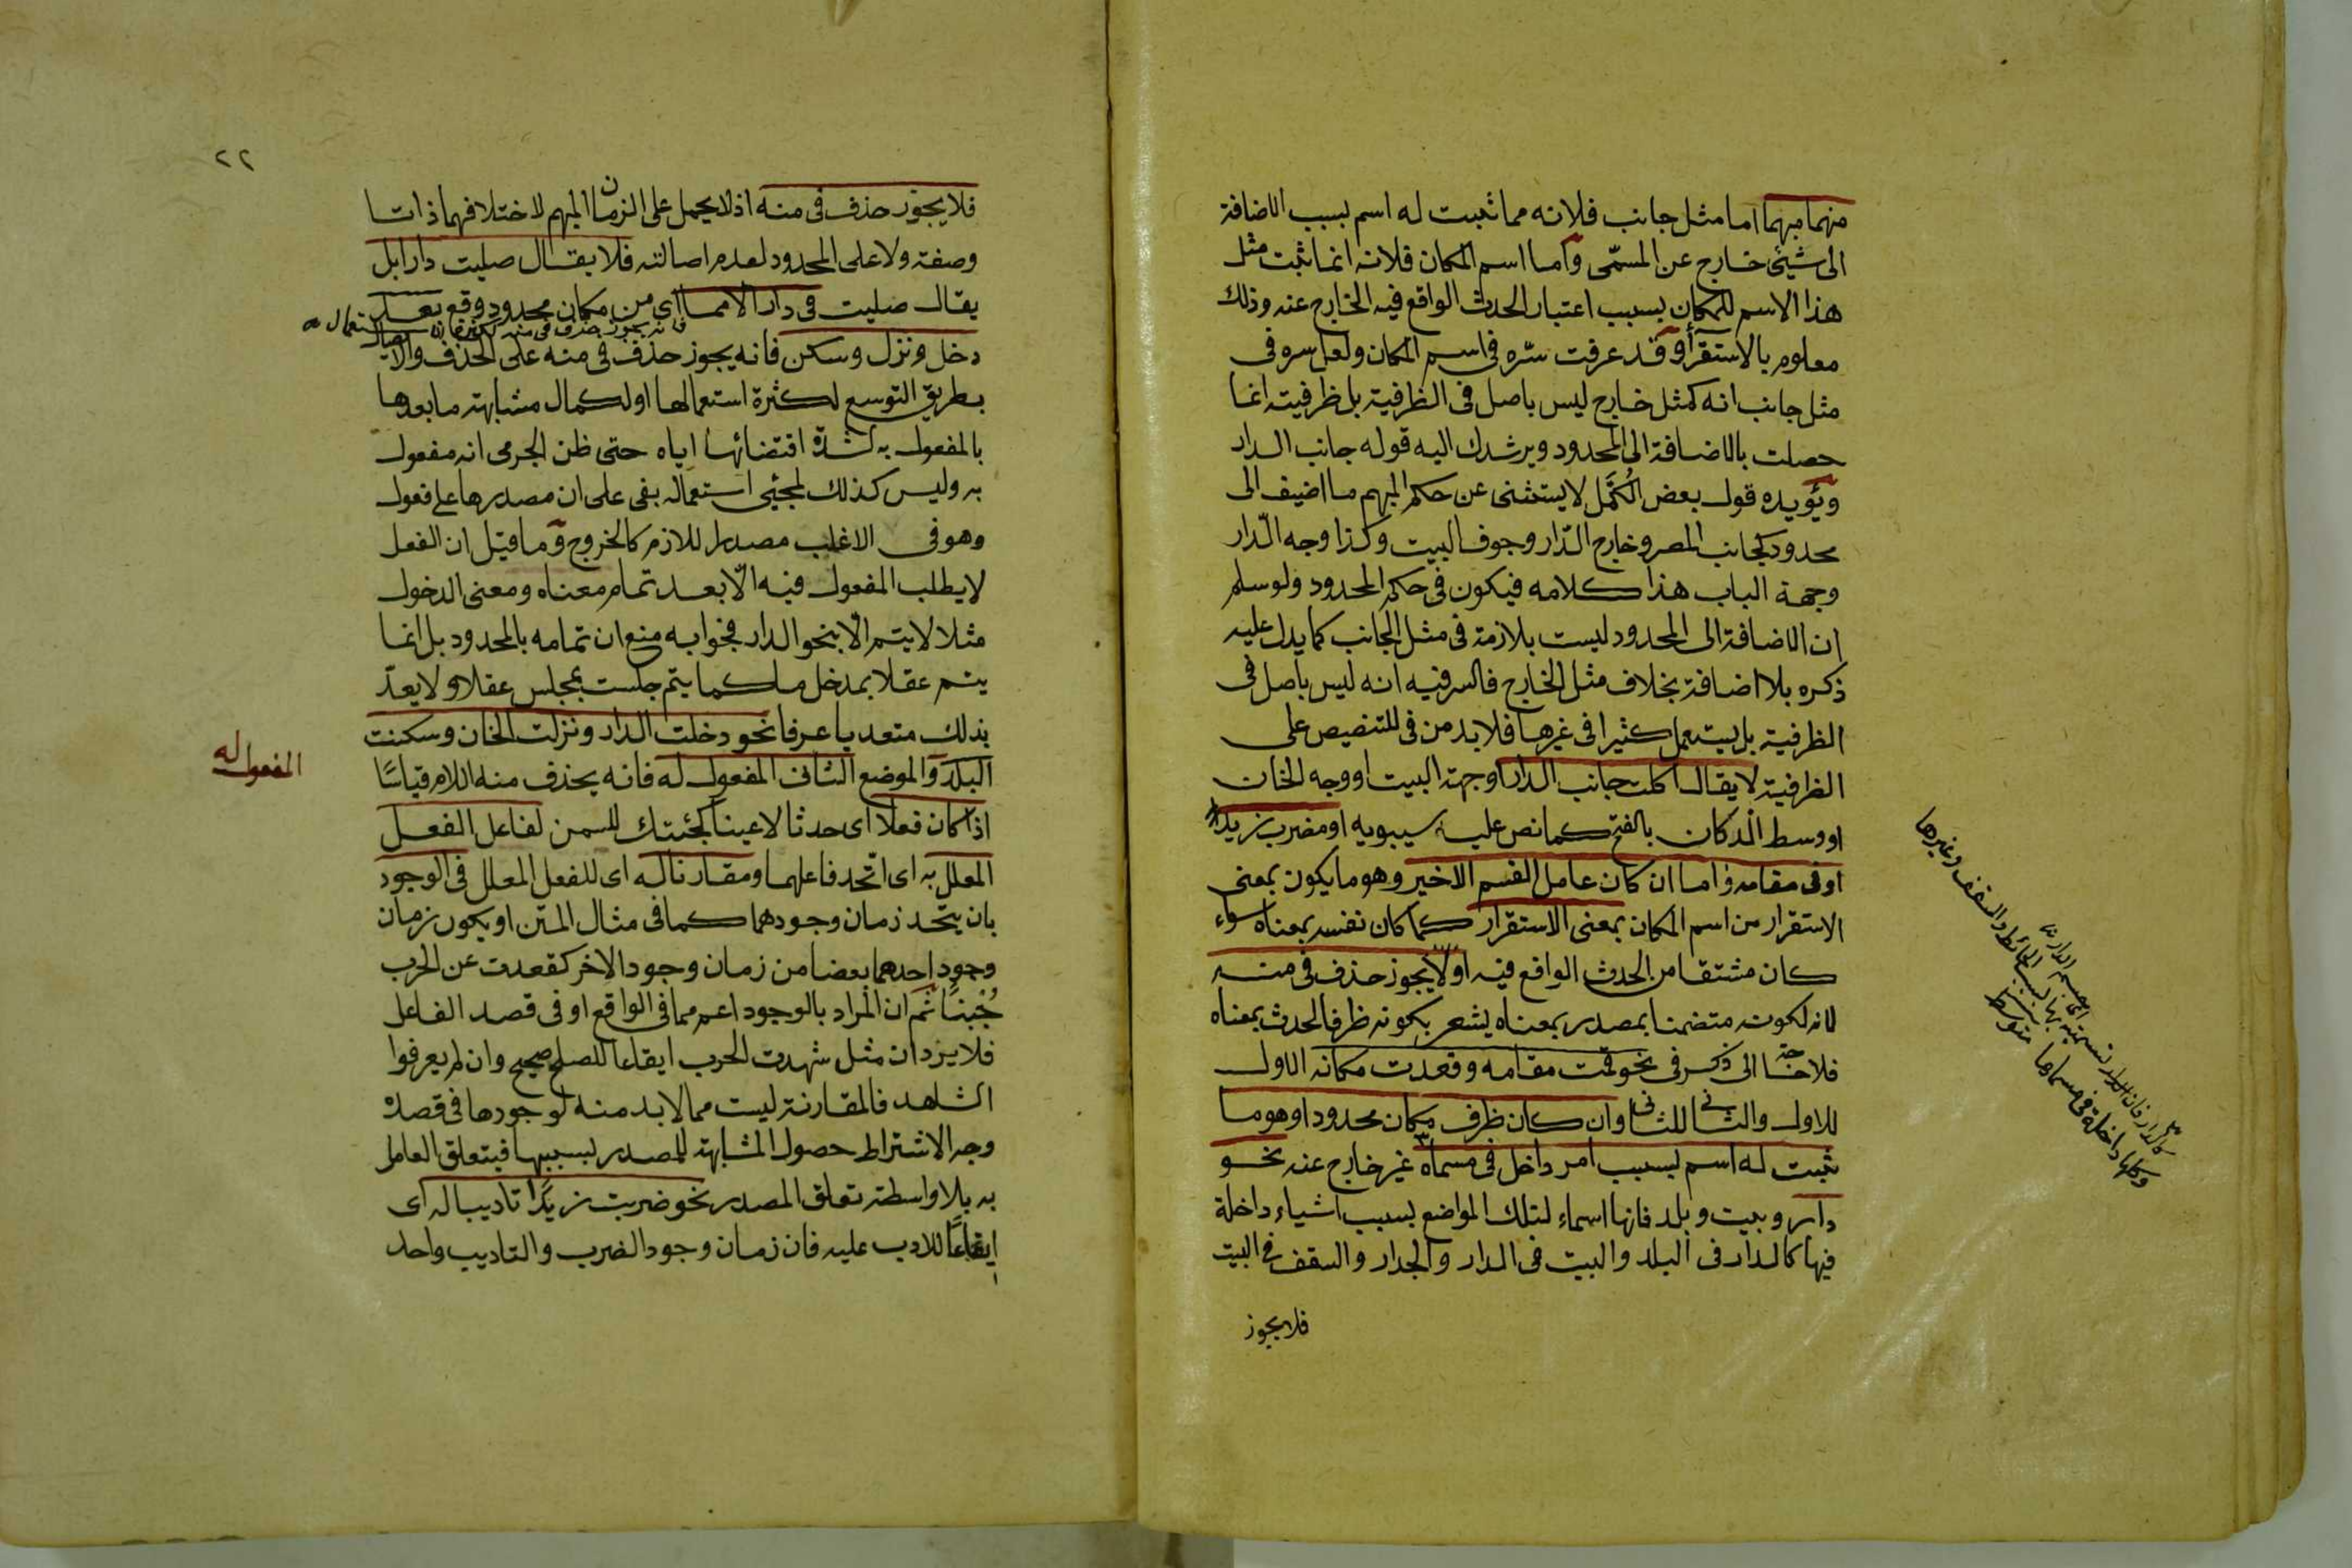 منهما مبهما اما مثل جانب فلانه مما ثبت له اسم بسبب الاضافة
الى شيئ خارج عن المسمّى وأما اسم المكان فلانه انما ثبت مثل
هذا الاسم للمكان بسبب اعتبار الحدث الواقع فيه الخارج عنه وذلك
معلوم بالاستقرأ وقد عرفت سّره فى اسم المكان ولعل سره فى
مثل جانب انه كمثل خارج ليس باصل فى الظرفية بل ظرفيته انما
حصلت بالاضافة الى المحدود ويرشدك اليه قوله جانب الدار
ويؤيده قول بعض الكُمَّل لا يستثنى عن حكم المبهم ما اضيف الى
محدود كجانب المصر وخارج الدّار وجوف البيت وكذا وجه الدّار
وجهة الباب هذا كلامه فيكون فى حكم المحدود ولو سلم
ان الاضافة الى المحدود ليست بلازمة فى مثل الجانب كما يدل عليه
ذكره بلا اضافة بخلاف مثل الخارج فالسر فيه انه ليس باصل فى
الظرفية بل يستعمل كثيرا فى غيرها فلا بد من فى للتنصيص على
الظرفية لا يقال اكلت جانب الدار او جهة البيت او وجه الخان
او وسط الدكان بالفتح كما نص عليه سيبويه او مضرب زيد
او فى مقامه واما ان كان عامل القسم الاخير وهو ما يكون بمعنى
الاستقرار من اسم المكان بمعنى الاستقرار كما كان نفسه بمعناه سواء
كان مشتقا من الحدث الواقع فيه اولا يجوز حذف فى منه
لانه لكونه متضمنا بمصدر بمعناه يشعر بكونه ظرفا لحدث بمعناه
فلا حاجة الى ذكر فى نحو قمت مقامه وقعدت مكانه الاول
للاول والثانى للثانى وان كان ظرف مكان محدودا وهو ما
ثبت له اسم بسبب امر داخل فى مسماه غير خارج عنه نحو
دار وبيت وبلد فانها اسماء لتلك المواضع بسبب اشياء داخلة
فيها كالدار فى البلد والبيت فى الدار والجدار والسقف فى البيت
فلا يجوز
كالدار فان الدار تسميته بها بسبب الحائط والسقف وغيرها
وكلها داخلة فى مسماها متوسط
٢٢
فلا يجوز حذف فى منه اذ لا يحمل على الزمان المبهم لاختلافهما ذاتا
وصفة ولا على المحدود لعدم اصالته فلا يقال صليت دارا بل
يقال صليت فى دار الا مما اى من مكان محدود وقع بعد
فانه يجوز حذف فى منه لكثرة الاستعمال
دخل ونزل وسكن فانه يجوز حذف فى منه على الحذف والايصال
بطريق التوسع لكثرة استعمالها او لكمال مشابهة ما بعدها
بالمفعول به لشدّة اقتضائها اياه حتى ظن الجرمى انه مفعول
به وليس كذلك لمجئى استعماله بفى على ان مصدرها على فعول
وهو فى الاغلب مصدر للازم كالخروج وما قيل ان الفعل
لا يطلب المفعول فيه الّا بعد تمام معناه ومعنى الدخول
مثلا لا يتم الّا بنحو الدار فجوابه منع ان تمامه بالمحدود بل انما
يتم عقلا بمدخل ما كما يتم جلست بمجلس عقلا ولا يعدّ
بذلك متعديا عرفا نحو دخلت الدار ونزلت الخان وسكنت
البلد والموضع الثانى المفعول له فانه يحذف منه اللام قياسًا
المفعول له
اذا كان فعلا اى حدثا لا عينا كجئتك للسمن لفاعل الفعل
المعلل به اى اتّحد فاعلهما ومقارنا له اى للفعل المعلل فى الوجود
بان يتّحد زمان وجودهما كما فى مثال المتن او يكون زمان
وجود احدهما بعضا من زمان وجود الاخر كقعدت عن الحرب
جُبْنًا ثم ان المراد بالوجود اعم مما فى الواقع او فى قصد الفاعل
فلا يرد ان مثل شهدت الحرب ايقاعا للصلح صحيح وان لم يعرفوا
الشاهد فالمقارنة ليست مما لا بد منه لوجودها فى قصده
وجه الاشتراط حصول المشابهة للمصدر بسببها فيتعلق العامل
به بلا واسطة تعلق المصدر نحو ضربت زيدًا تاديبا له اى
ايقاعًا للادب عليه فان زمان وجود الضرب والتاديب واحد